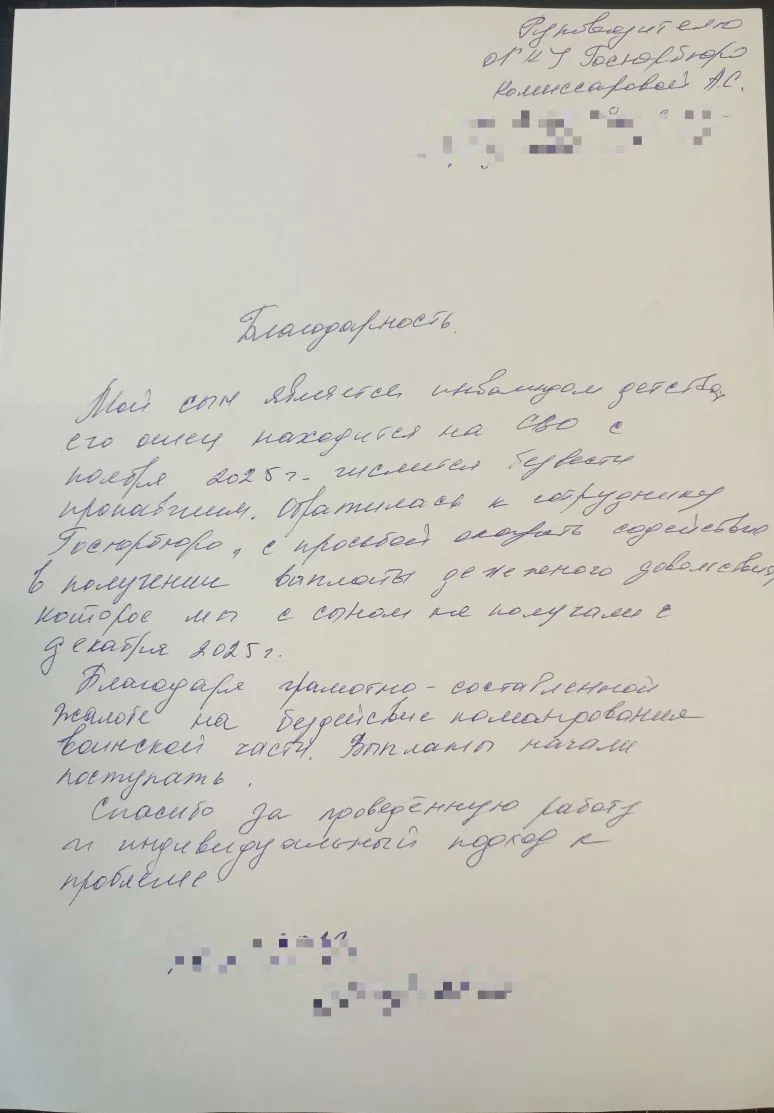 Руководителю
ОГКУ Госюрбюро
Комиссаровой А.С.
Благодарность.
Мой сын является инвалидом детства,
его отец находится на СВО с
ноября 2025г. числится безвести
пропавшим. Обратилась к сотруднику
Госюрбюро, с просьбой оказать содействие
в получении выплаты денежного довольствия,
которое мы с сыном не получали с
декабря 2025г.
Благодаря грамотно-составленной
жалобе на бездействие командования
воинской части. Выплаты начали
поступать.
Спасибо за проведённую работу
и индивидуальный подход к
проблеме